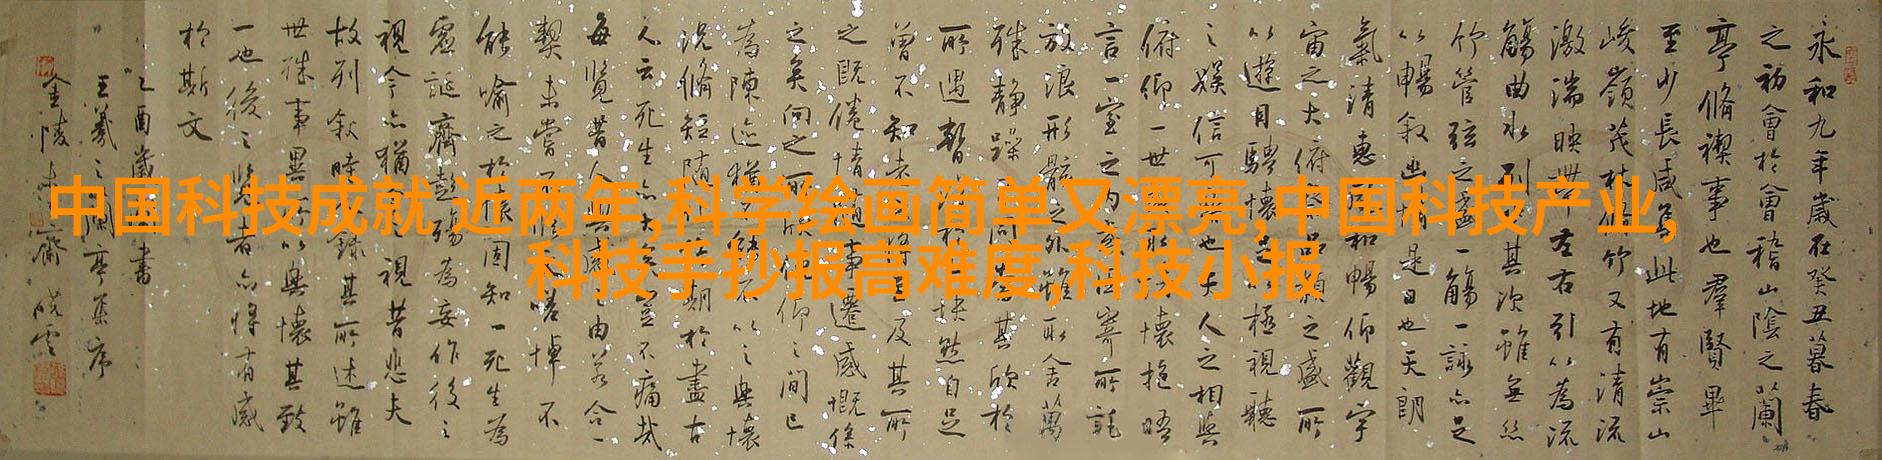 中国科技成就 近两年,科学绘画简单又漂亮,中国科技产业,
科技手抄报高难度,科技小报
永和九年歲在癸丑暮春
之初會於會稽山陰之蘭
亭脩禊事也羣賢畢
至少長咸焉此地有崇山
峻嶺茂林脩竹又有清流
激湍映帶左右引以為流
觴曲水列其次雖無絲
竹管弦之盛一觴一詠亦足
以暢敘幽情是日也天朗
氣清惠風和暢仰觀宇
宙之大俯察品類之盛所
以遊目騁懷足以極視聽
之娛信可樂也夫人之相與
俯仰一世或取諸懷抱晤
言一室之內或因寄所託
放浪形骸之外雖取舍萬
殊靜躁不同當其欣於
所遇暫得於己快然自足
曾不知老之將至及其所
之既倦情隨事遷感慨係
之矣向之所欣俛仰之間已
為陳迹猶不能不以之興懷
況脩短隨化終期於盡古
人云死生亦大矣豈不痛哉
每覽昔人興感之由若合一
契未嘗不臨文嗟悼不
能喻之於懷固知一死生為
虛誕齊彭殤為妄作後之
視今亦猶今之視昔悲夫
故列敘時人錄其所述雖
世殊事異所以興懷其致
一也後之覽者亦將有感
於斯文
乙酉歲書
王羲之蘭亭集序
金陵齋